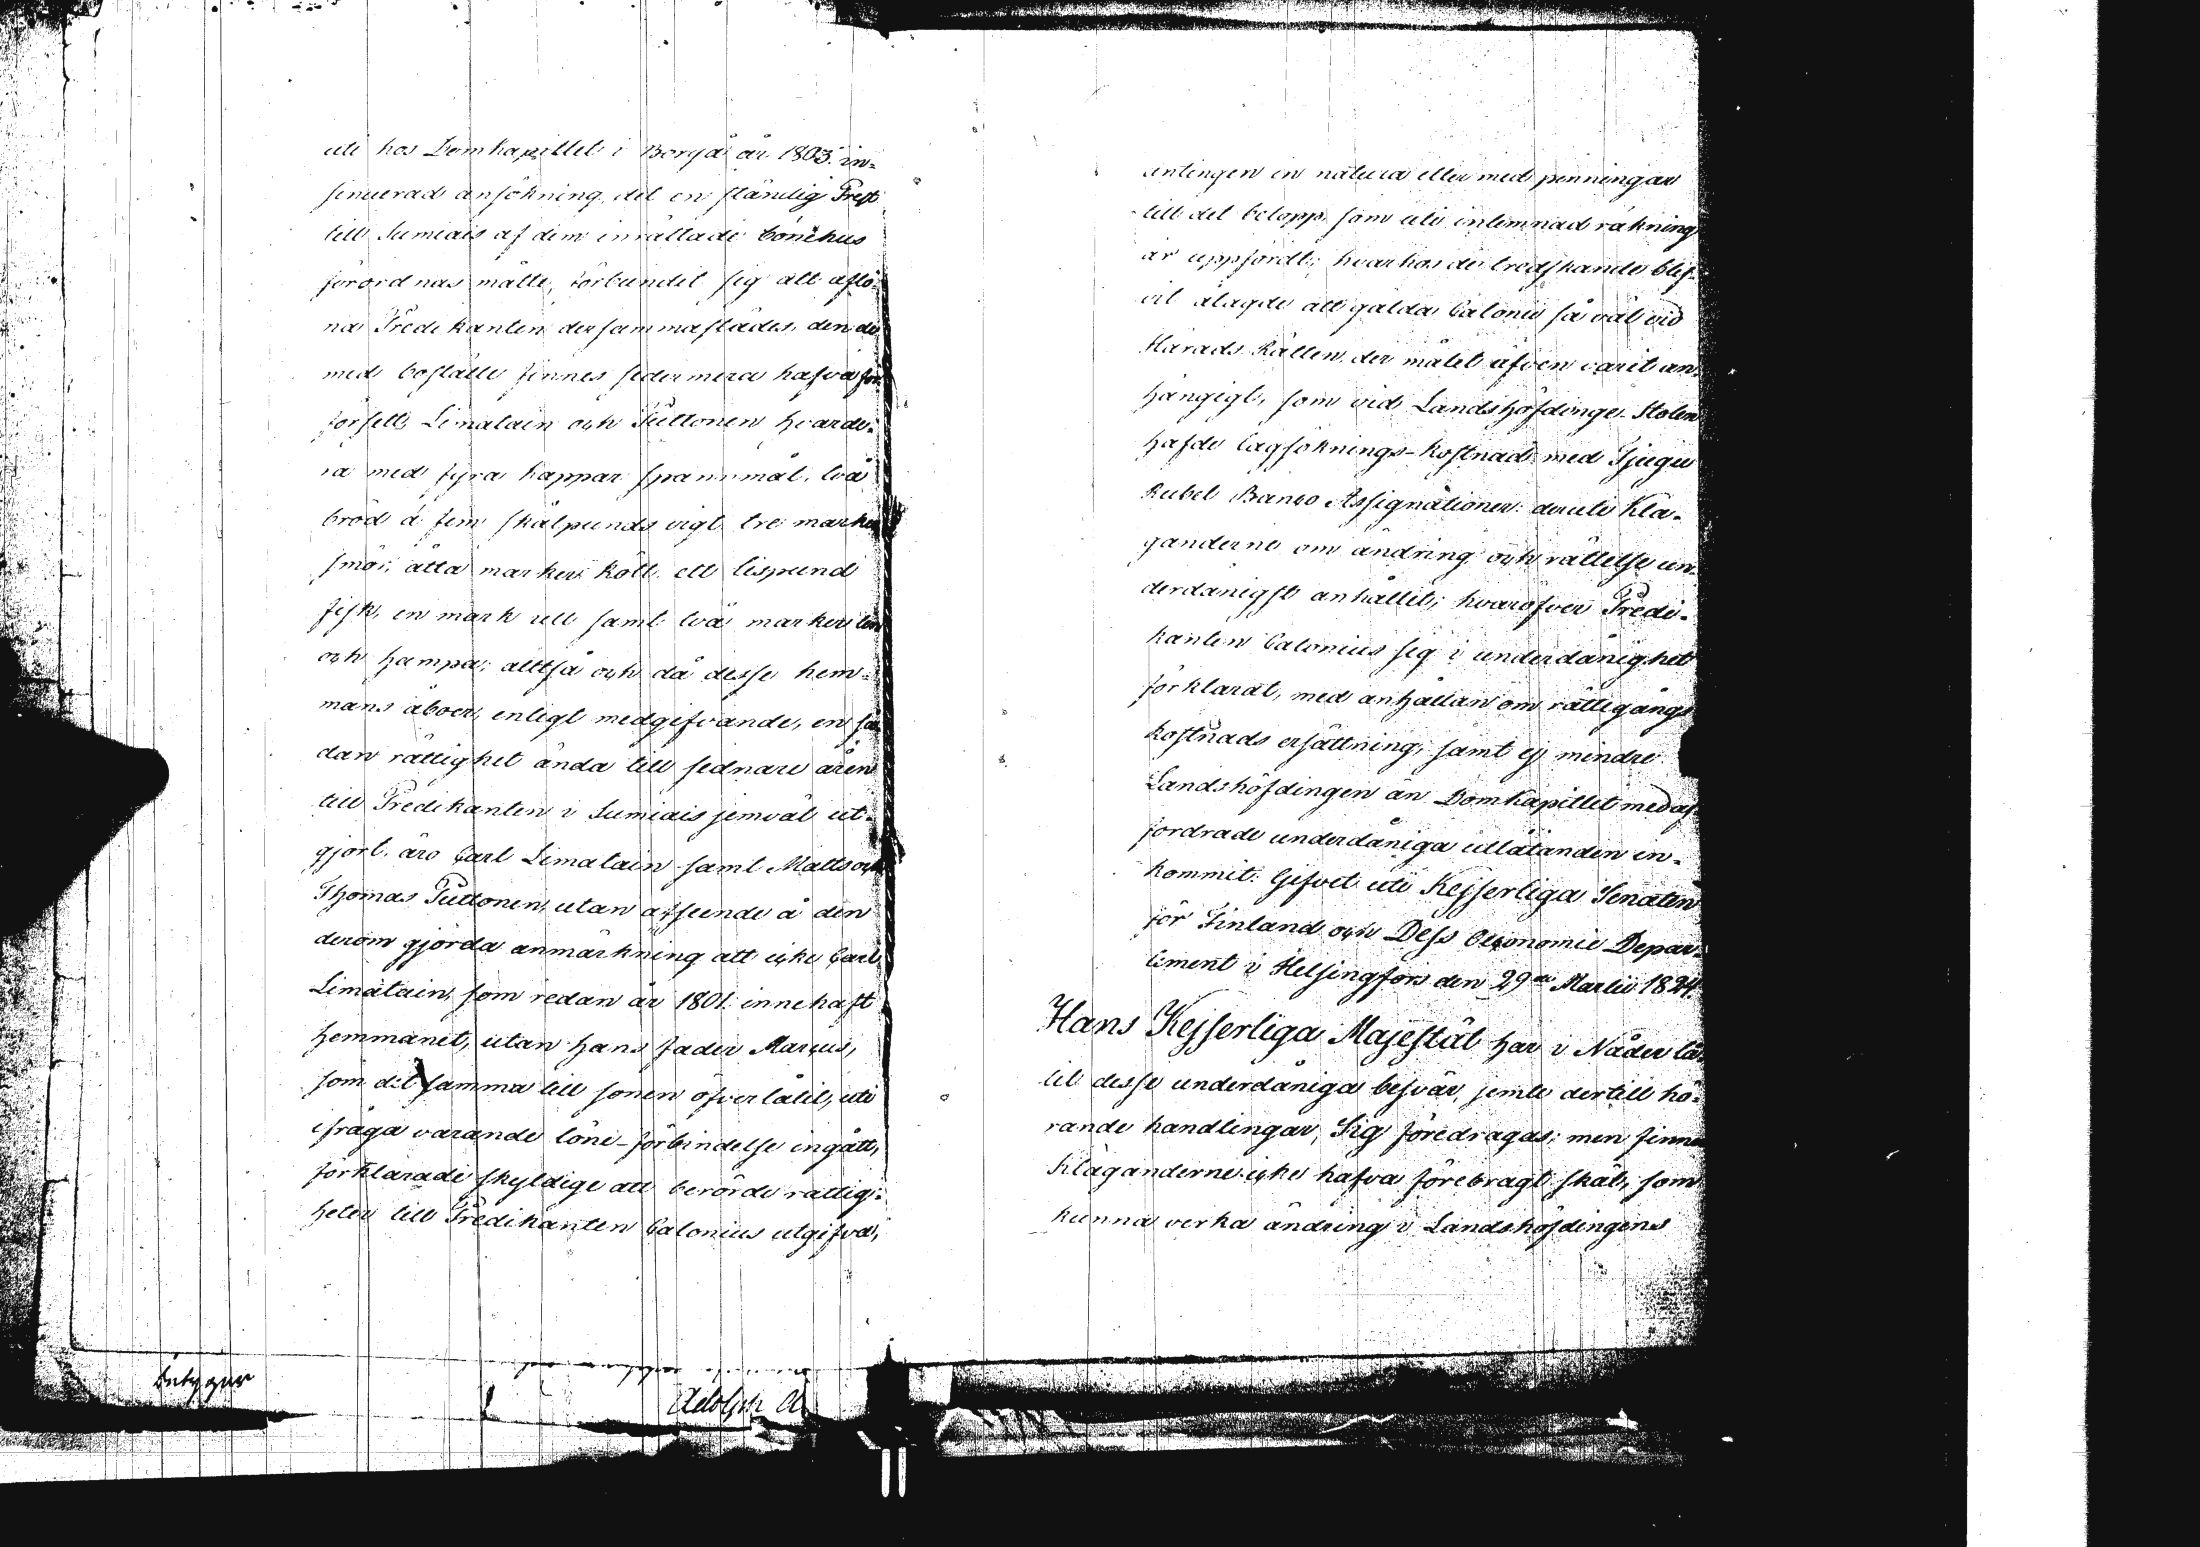 uti hos Domkapitlet i Borgå år 1803. in-
sinuerad ansökning, det en ständig Prest
till Sumiais af dem inrättade bönehus
förordnas måtte, förbundit sig att aflö-
na Predikanten dersammastädes, den de
med boställe finnes sedermera hafva för-
försett, Limatain och Puttonen hvarde-
ra med fyra kappar spannmål, två
bröd á fem skålpunds vigt, tre marker
smör, åtta marker kött, ett lispund
fisk, en mark ull samt två marker lin
och hampa; alltså och då desse hem-
mans åboer, enligt medgifvande, en så-
dan rättighet ända till sednare åren
till Predikanten i Sumiais jemväl ut-
gjort, äro Carl Limatain samt Matts och
Thomas Puttonen, utan afseende å den
derom gjorda anmärkning att icke Carl
Limatain, som redan år 1801. innehaft
hemmanet, utan hans fader Marcus,
som det samma till sonen öfverlåtit, uti
ifråga varande löne-förbindelse ingått,
förklarade skyldige att berörde rättig-
heter till Predikanten Calonius utgifva,
antingen in natura eller med penningar
till det belopp, som uti inlemnad räkning
är uppfördt; hvarhos de tredskande blif-
vit ålagde att gälda Calonii så väl vid
Härads Rätten, der målet äfven varit an-
hängigt, som vid Landshöfdinge-Stolen
hafde lagsöknings-kostnad med Tjugu
Rubel Banco Assignationer: deruti Kla-
ganderne om ändring och rättelse un-
derdånigst anhållit; hvaröfver Predi-
kanten Calonius sig i underdånighet
förklarat, med anhållan om rättegångs
kostnads ersättning; samt ej mindre
Landshöfdingen än Domkapitlet med af-
fordrade underdåniga utlåtanden in-
kommit. Gifvet uti Kejserliga Senaten
för Finland och Dess Oeconomie Depar-
tement i Helsingfors den 29de Martii 1824.
Hans Kejserliga Majestät har i Nåder lå-
tit desse underdåniga besvär, jemte dertill hö-
rande handlingar, Sig föredragas; men finner
Klaganderne icke hafva förebragt skäl, som
kunna verka ändring i Landshöfdingens
Adolph